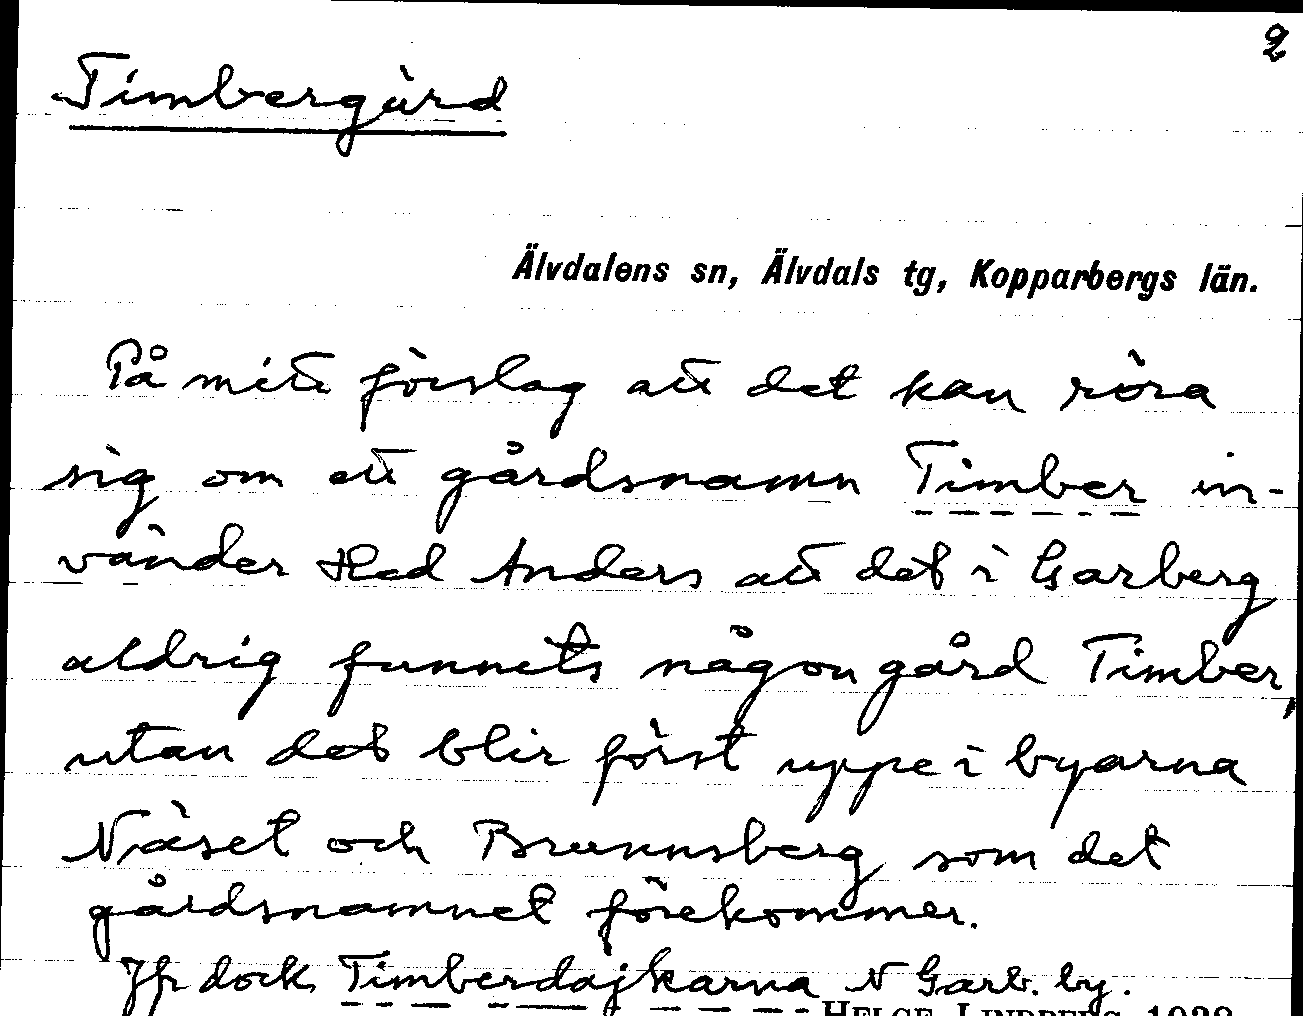 2
Timbergärd
Älvdalens sn, Älvdals tg, Kopparbergs län.
På mitt förslag att det kan röra
sig om ett gårdsnamn Timber in-
vänder Hed Anders att det i Garberg
aldrig funnits någon gård Timber,
utan det blir först uppe i byarna
Näset och Brunnsberg som det
gårdsnamnet förekommer.
Jfr dock Timberdajkarna N Garb. by.
HELGE LINDBERG 1938